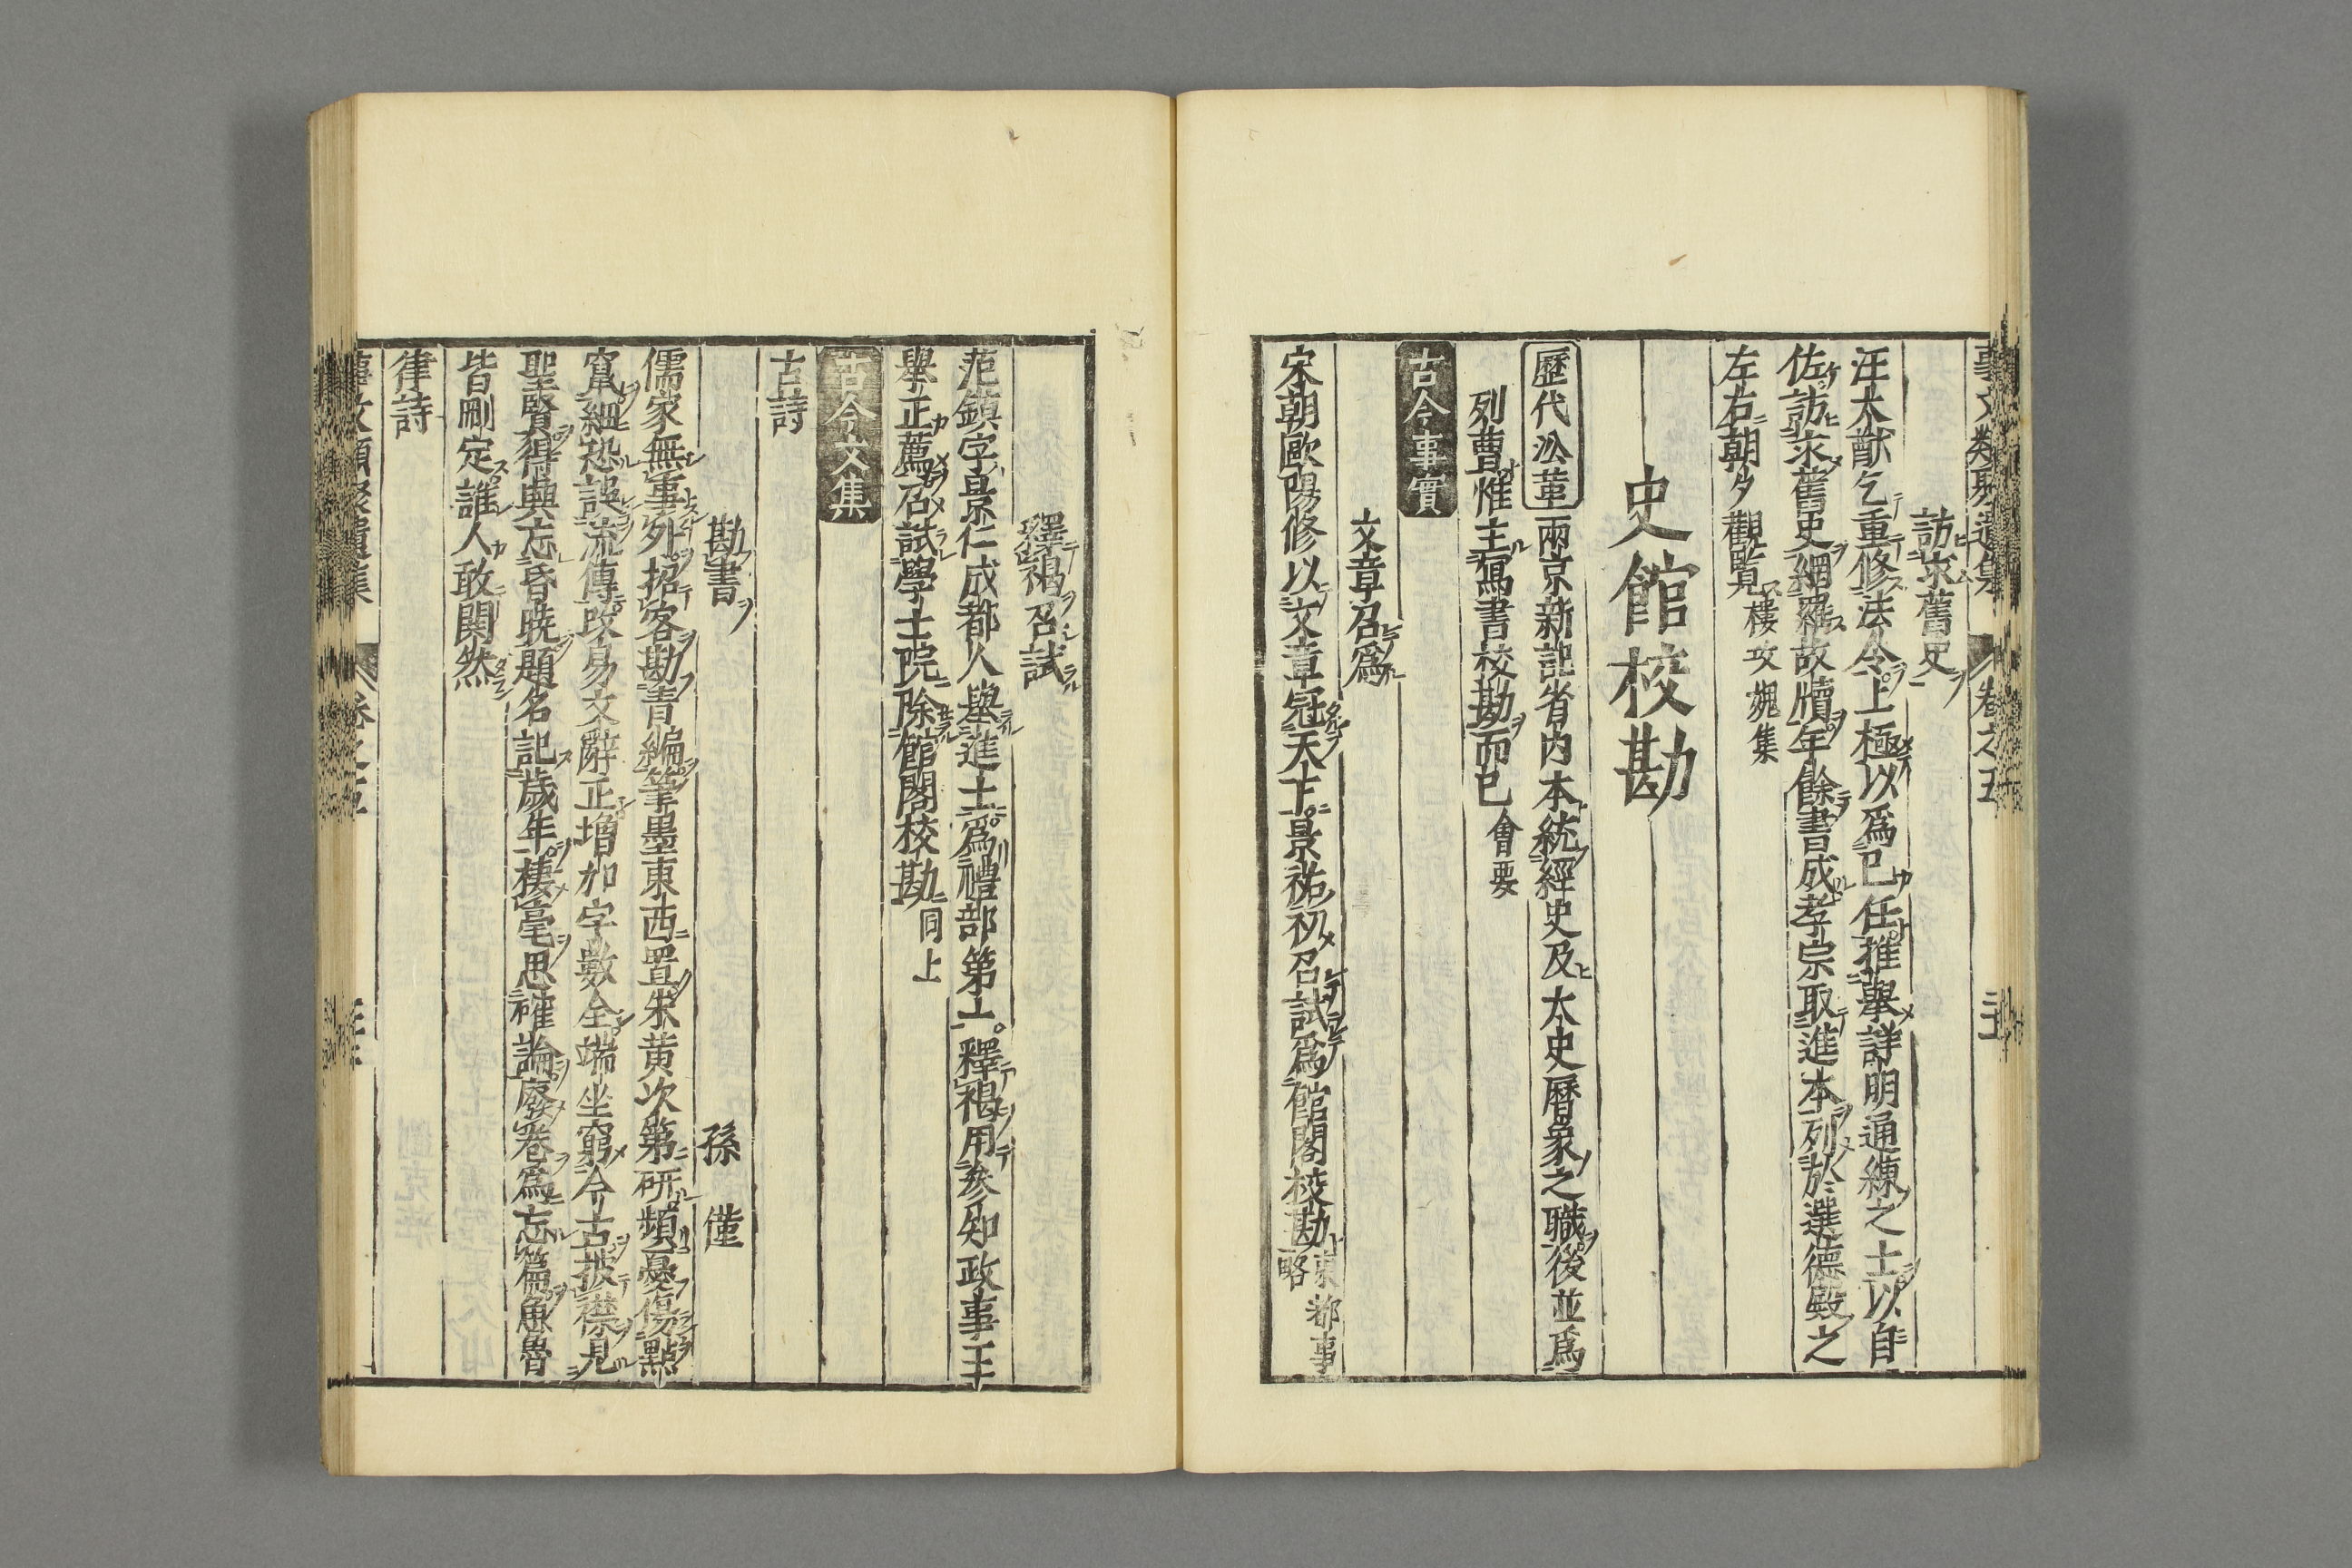 事文類聚遺集 卷之五
訪求舊史
汪大猷乞重修法令上極以爲已任推擧詳明通練之士以自
佐訪求舊史網羅故牘年餘書成孝宗取進本列於選德殿之
左右朝夕觀覧樓攻媿集
史館校勘
歷代沿革 兩京新記省内本統經史及太史曆象之職後並爲
列曹惟主寫書校勘而已會要
古今事實
文章召爲
宋朝歐陽修以文章冠天下景祐初召試爲館閣校勘東都事略
釋褐召試
范鎮字景仁成都人擧進士爲禮部第一釋褐用參知政事王
擧正薦召試學士院除館閣校勘同上
古今文集
古詩
勘書 孫僅
儒家無事外招客勘青編筆墨東西置朱黄次第研頻憂傷點
竄細恐誤流傳改易文辭正増加字數全端坐窮今古披襟見
聖賢得興忘昏曉題名記歳年棲毫思確論廢卷爲忘篇魚魯
皆刪定誰人敢閧然
律詩
事文類聚遺集 卷之五